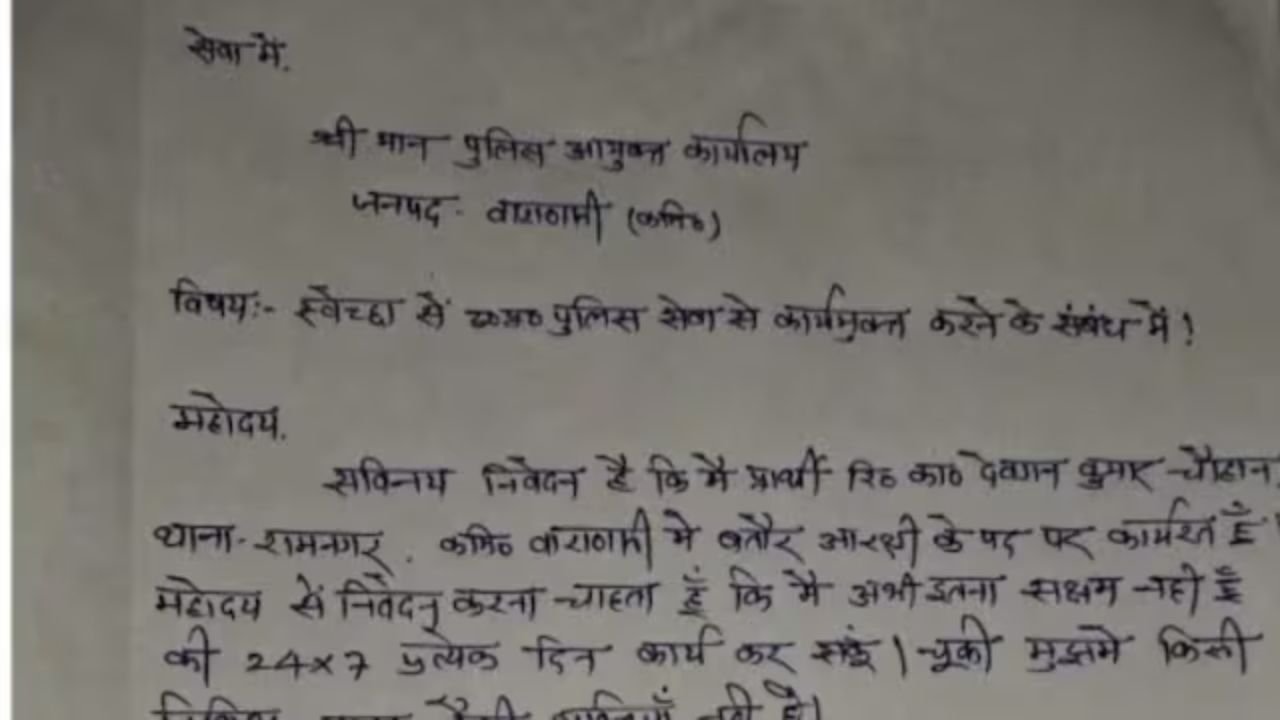 सेवा में.
श्री मान पुलिस आयुक्त कार्यालय
जनपद - वाराणसी (कमि०)
विषय:- स्वेच्छा से उ०प्र० पुलिस सेवा से कार्यमुक्त करने के संबंध में !
महोदय.
सविनय निवेदन है कि मै प्रार्थी रि० का० कुमार चौहान
थाना- रामनगर. कमि० वाराणसी मे बतौर आरक्षी के पद पर कार्यरत हूँ।
महोदय सें निवेदन करना चाहता हूँ कि मै अभी इतना सक्षम नही हूँ
की 24x7 प्रत्येक दिन कार्य कर सकूं। चूकी मुझमे किसी